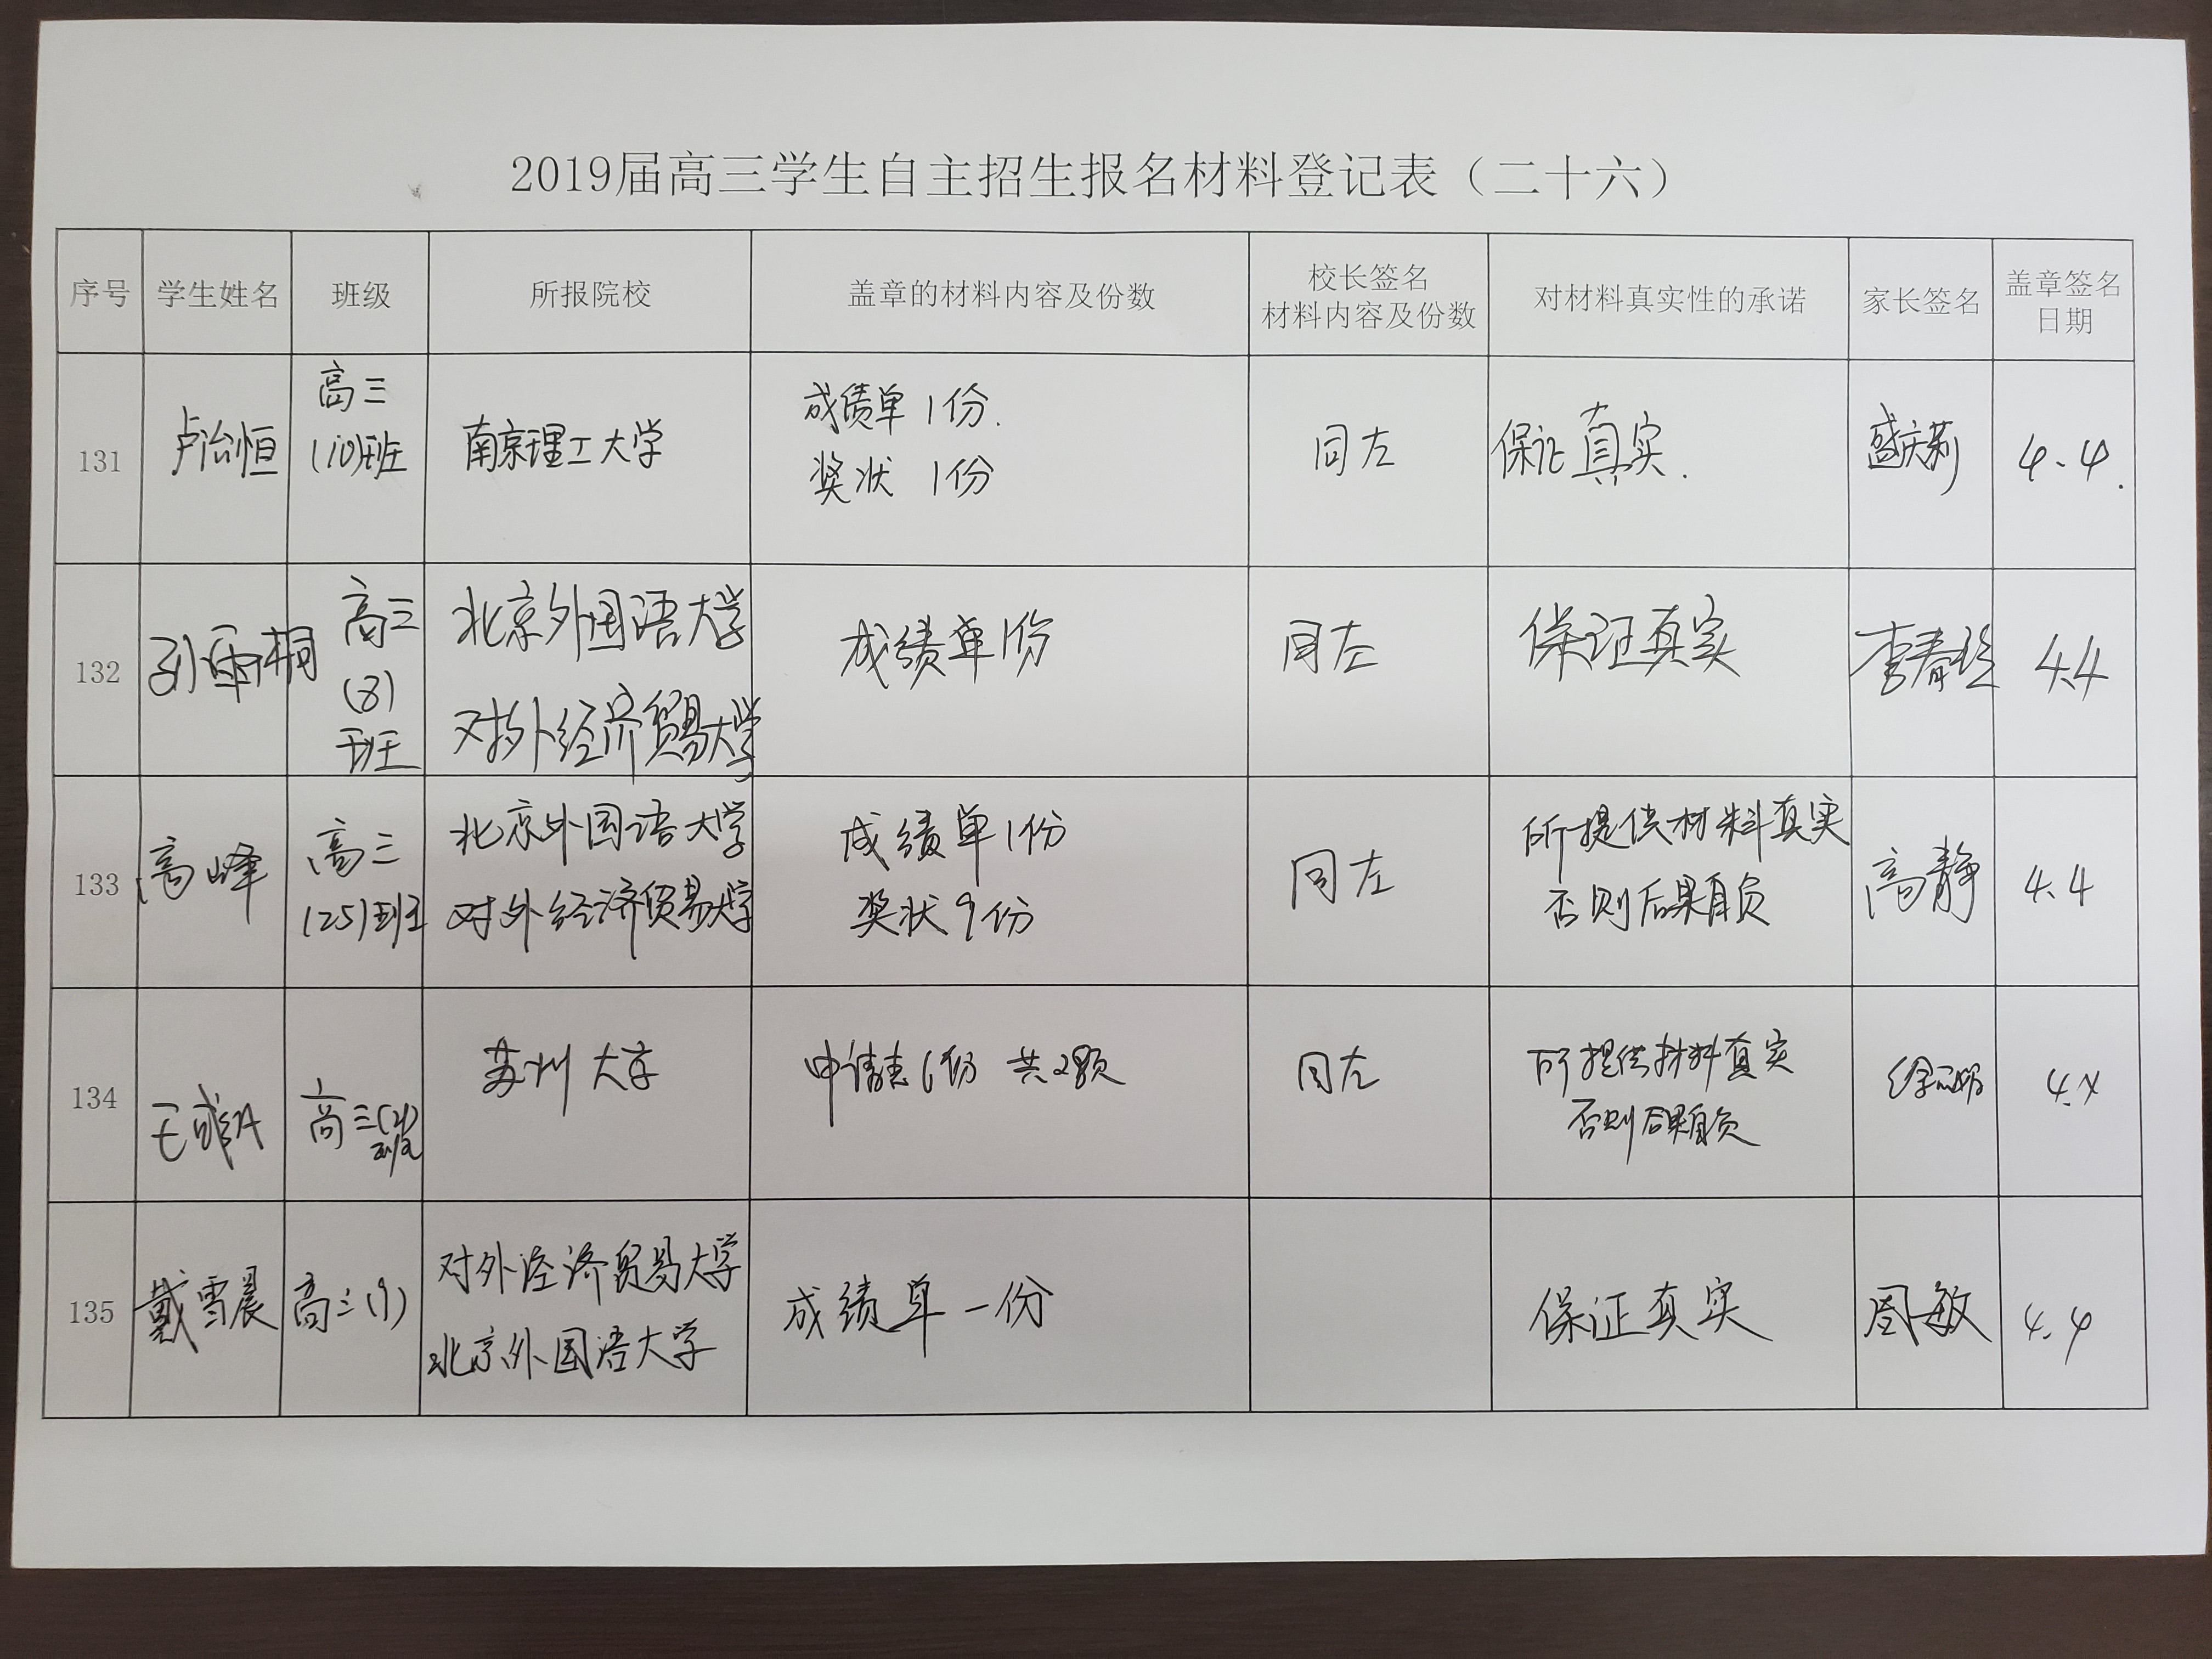 2019届高三学生自主招生报名材料登记表（二十六）
序号 学生姓名 班级 所报院校 盖章的材料内容及份数 校长签名 材料内容及份数 对材料真实性的承诺 家长签名 盖章签名 日期
131 卢治恒 高三 (10)班 南京理工大学 成绩单1份. 奖状 1份 同左 保证真实. 盛庆莉 4.4.
132 孙雨桐 高三 (8) 班 北京外国语大学 对外经济贸易大学 成绩单1份 同左 保证真实 李春 4.4
133 高峰 高三 (25)班 北京外国语大学 对外经济贸易大学 成绩单1份 奖状9份 同左 所提供材料真实 否则后果自负 高静 4.4
134 高三 班 苏州大学 同左 所提供材料真实 否则后果自负 4.4
135 戴雪晨 高三(9) 对外经济贸易大学 北京外国语大学 成绩单一份 保证真实 周敏 4.4